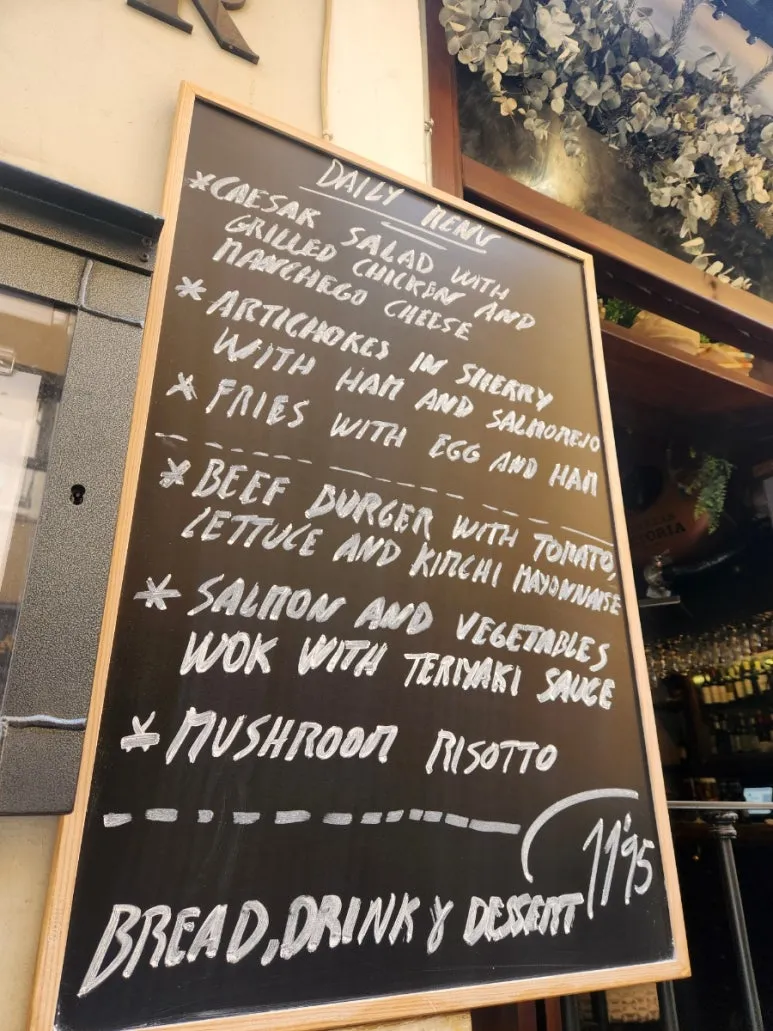 R
DAILY MENU
*CAESAR SALAD WITH
GRILLED CHICKEN AND
MANCHEGO CHEESE
* ARTICHOKES IN SHERRY
WITH HAM AND SALMOREJO
* FRIES WITH EGG AND HAM
* BEEF BURGER WITH TOMATO,
LETTUCE AND KIMCHI MAYONNAISE
* SALMON AND VEGETABLES
WOK WITH TERIYAKI SAUCE
* MUSHROOM RISOTTO
11'95
BREAD, DRINK Y DESSERT